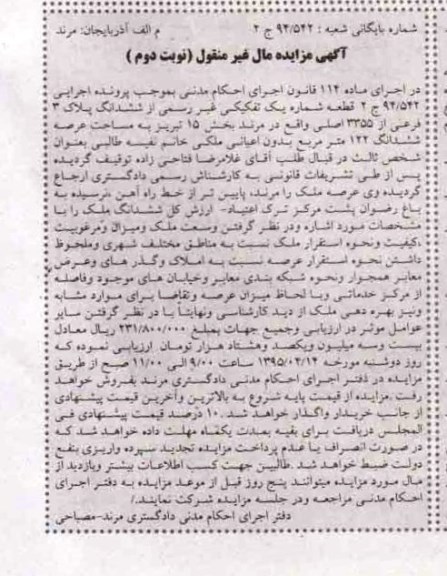 شماره بایگانی شعبه : ۹۴/۵۴۲ ج ۲
م الف آذربایجان: مرند
آگهی مزایده مال غیر منقول (نوبت دوم )
در اجرای ماده ۱۱۴ قانون اجرای احکام مدنی بموجب پرونده اجرایی
۹۴/۵۴۲ ج ۲ قطعه شماره یک تفکیکی غیر رسمی از ششدانگ پلاک ۳
فرعی از ۳۳۵۵ اصلی واقع در مرند بخش ۱۵ تبریز به مساحت عرصه
ششدانگ ۱۲۲ متر مربع بدون اعیانی ملکی خانم نفیسه طالبی بعنوان
شخص ثالث در قبال طلب آقای غلامرضا فتاحی زاده توقیف گردیده
پس از طی تشریفات قانونی به کارشناش رسمی دادگستری ارجاع
گردیده وی عرصه ملک را مرند، پایین تر از خط راه آهن ،نرسیده به
باغ رضوان پشت مرکز ترک اعتیاد- ارزش کل ششدانگ ملک را با
مشخصات مورد اشاره ودر نظر گرفتن وسعت ملک ومیزان ومرغوبیت
،کیفیت ونحوه استقرار ملک نسبت به مناطق مختلف شهری وملحوظ
داشتن نحوه استقرار عرصه نسبت به املاک وگذر های وعرض
معابر همجوار ونحوه شبکه بندی معابر وخیابان های موجود وفاصله
از مرکز خدماتی وبا لحاظ میزان عرصه وتقاضا برای موارد مشابه
ونیز بهره دهی ملک از دید کارشناسی ونهایتاً با در نظر گرفتن سایر
عوامل موثر در ارزیابی وجمیع جهات بمبلغ ۲۳۱/۸۰۰/۰۰۰ ریال معادل
بیست وسه میلیون ویکصد وهشتاد هزار تومان ارزیابی نموده که
روز دوشنبه مورخه ۱۳۹۵/۰۲/۱۴ ساعت ۹/۰۰ الی ۱۱/۰۰ صبح از طریق
مزایده در دفتر اجرای احکام مدنی دادگستری مرند بفروش خواهد
رفت .مزایده از قیمت پایه شروع به بالاترین وآخرین قیمت پیشنهادی
از جانب خریدار واگذار خواهد شد .۱۰ درصد قیمت پیشنهادی فی
المجلس دریافت برای بقیه بمدت یکماه مهلت داده خواهد شد که
در صورت انصراف یا عدم پرداخت مزایده تجدید سپرده واریزی بنفع
دولت ضبط خواهد شد .طالبین جهت کسب اطلاعات بیشتر وبازدید از
مال مورد مزایده میتوانند پنج روز قبل از موعد مزایده به دفتر اجرای
احکام مدنی مراجعه ودر جلسه مزایده شرکت نمایند./
دفتر اجرای احکام مدنی دادگستری مرند-مصباحی